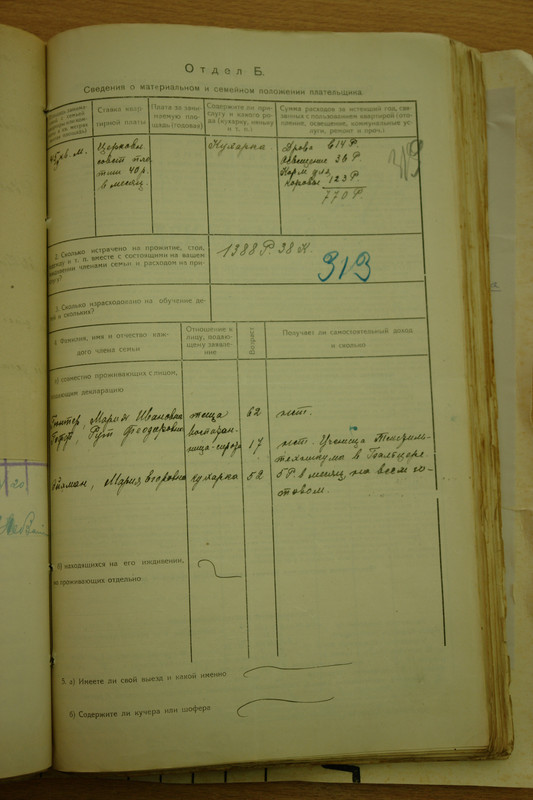 Отдел Б.
Сведения о материальном и семейном положении плательщика.
Ставка квар-
тирной платы
Плата за зани-
маемую пло-
щадь (годовая)
Содержите ли при-
слугу и какого ро-
да (кухарку, няньку
и т. п.)
Сумма расходов за истекший год, свя-
занных с пользованием квартирой (ото-
пление, освещение, коммунальные ус-
луги, ремонт и проч.)
45 кв. м.
Церковн.
совет пла-
тит 40 р.
в месяц.
Кухарка
Дрова 614 Р.
Освещение 36 Р.
Корм для
коровы 123 Р.
770 Р.
313
2. Сколько истрачено на прожитие, стол,
одежду и т. п. вместе с состоящими на вашем
иждивении членами семьи и расходом на при-
слугу?
1388 Р. 38 К.
313
3. Сколько израсходовано на обучение де-
тей и скольких?
4. Фамилия, имя и отчество каж-
дого члена семьи
Отношение к
лицу, подаю-
щему заявле-
ние
Возраст
Получает ли самостоятельный доход
и сколько
а) совместно проживающих с лицом,
подающим декларацию
Мария Ивановна жена 62 нет.
Рут Феодоровна воспитан-
ница-сирота 17 нет. Ученица
техникума в
Мария Егоровна кухарка 52 5 Р. в месяц, на всем го-
товом.
б) находящихся на его иждивении,
но проживающих отдельно
5. а) Имеете ли свой выезд и какой именно
б) Содержите ли кучера или шофера